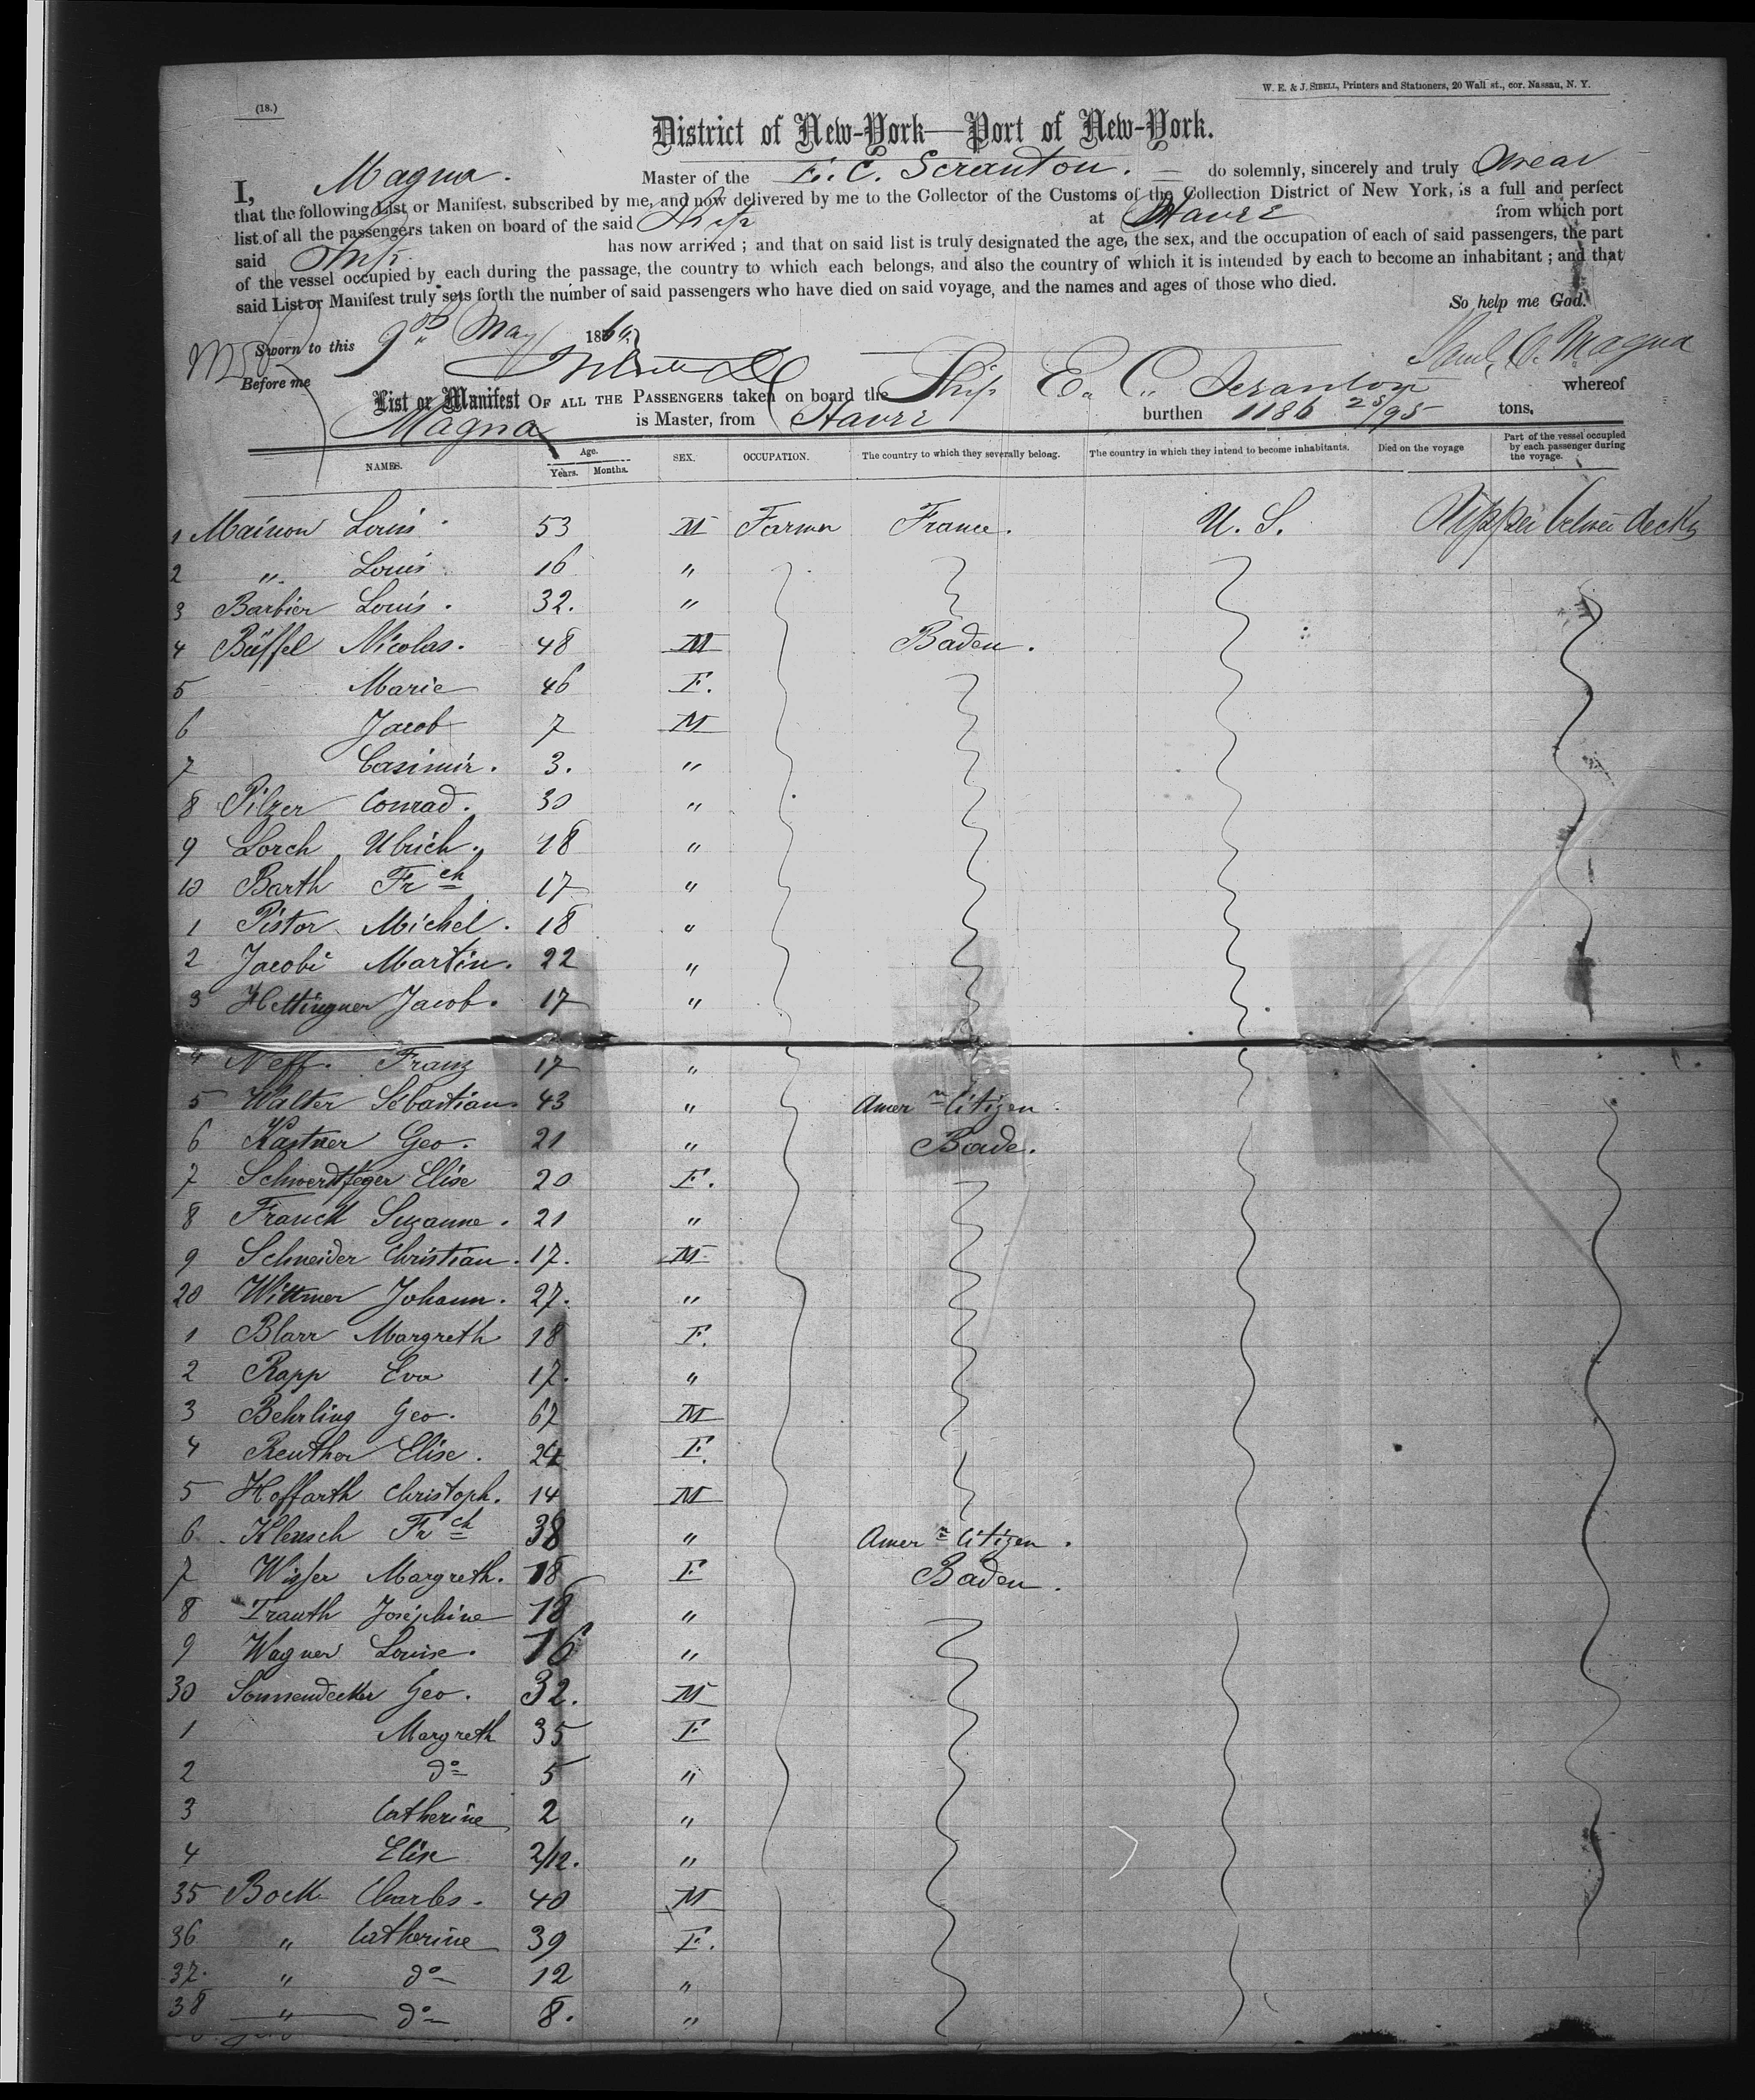 (18.)
W. E. & J. SIBELL, Printers and Stationers, 20 Wall st., cor. Nassau, N. Y.
District of New-York—Port of New-York.
I, Magna. Master of the E. C. Scranton. do solemnly, sincerely and truly swear
that the following List or Manifest, subscribed by me, and now delivered by me to the Collector of the Customs of the Collection District of New York, is a full and perfect
list of all the passengers taken on board of the said Ship at Havre from which port
said Ship has now arrived ; and that on said list is truly designated the age, the sex, and the occupation of each of said passengers, the part
of the vessel occupied by each during the passage, the country to which each belongs, and also the country of which it is intended by each to become an inhabitant ; and that
said List or Manifest truly sets forth the number of said passengers who have died on said voyage, and the names and ages of those who died.
So help me God.
Sworn to this 9th May 186
Before me
Saml. C. Magna
List or Manifest OF ALL THE PASSENGERS taken on board the Ship E. C. Scranton whereof
Magna is Master, from Havre burthen 1186 25/95 tons.
NAMES. Age. Years. Months. SEX. OCCUPATION. The country to which they severally belong. The country in which they intend to become inhabitants. Died on the voyage Part of the vessel occupied by each passenger during the voyage.
1 Mainon Louis 53 M Farmer France. U. S. decks
2 " Louis 16 "
3 Barbier Louis. 32. "
4 Büffel Nicolas. 48 M Baden.
5 Marie 46 F.
6 Jacob 7 M
7 Casimir. 3. "
8 Pilzer Conrad. 30 "
9 Lorch Ulrich. 18 "
10 Barth Frch 17 "
1 Pistor Michel. 18 "
2 Jacobi Martin. 22 "
3 Hettinguer Jacob. 17 "
4 Neff. Franz 17 "
5 Walter Sebastian. 43 " Amern Citizen.
6 Kastner Geo. 21 " Bade.
7 Schwerdtfeger Elise 20 F.
8 Franck Suzanne. 21 "
9 Schneider Christian. 17. M
20 Wittmer Johann. 27. "
1 Blarr Margreth 18 F.
2 Rapp Eva 17. "
3 Behrling Geo. 67 M
4 Reuther Elise. 24 F.
5 Hoffarth Christoph. 14 M
6 Klensch Frch 38 " Amern Citizen.
7 Wisser Margreth. 18 F Baden.
8 Trauth Josephine 18 "
9 Wagner Louise. 16 "
30 Sonnendecker Geo. 32. M
1 Margreth 35 F
2 do 5 "
3 Catherine 2 "
4 Elise 2/12. "
35 Bock Charles. 40 M
36 " Catherine 39 F.
37. " do 12 "
38 " do 8. "